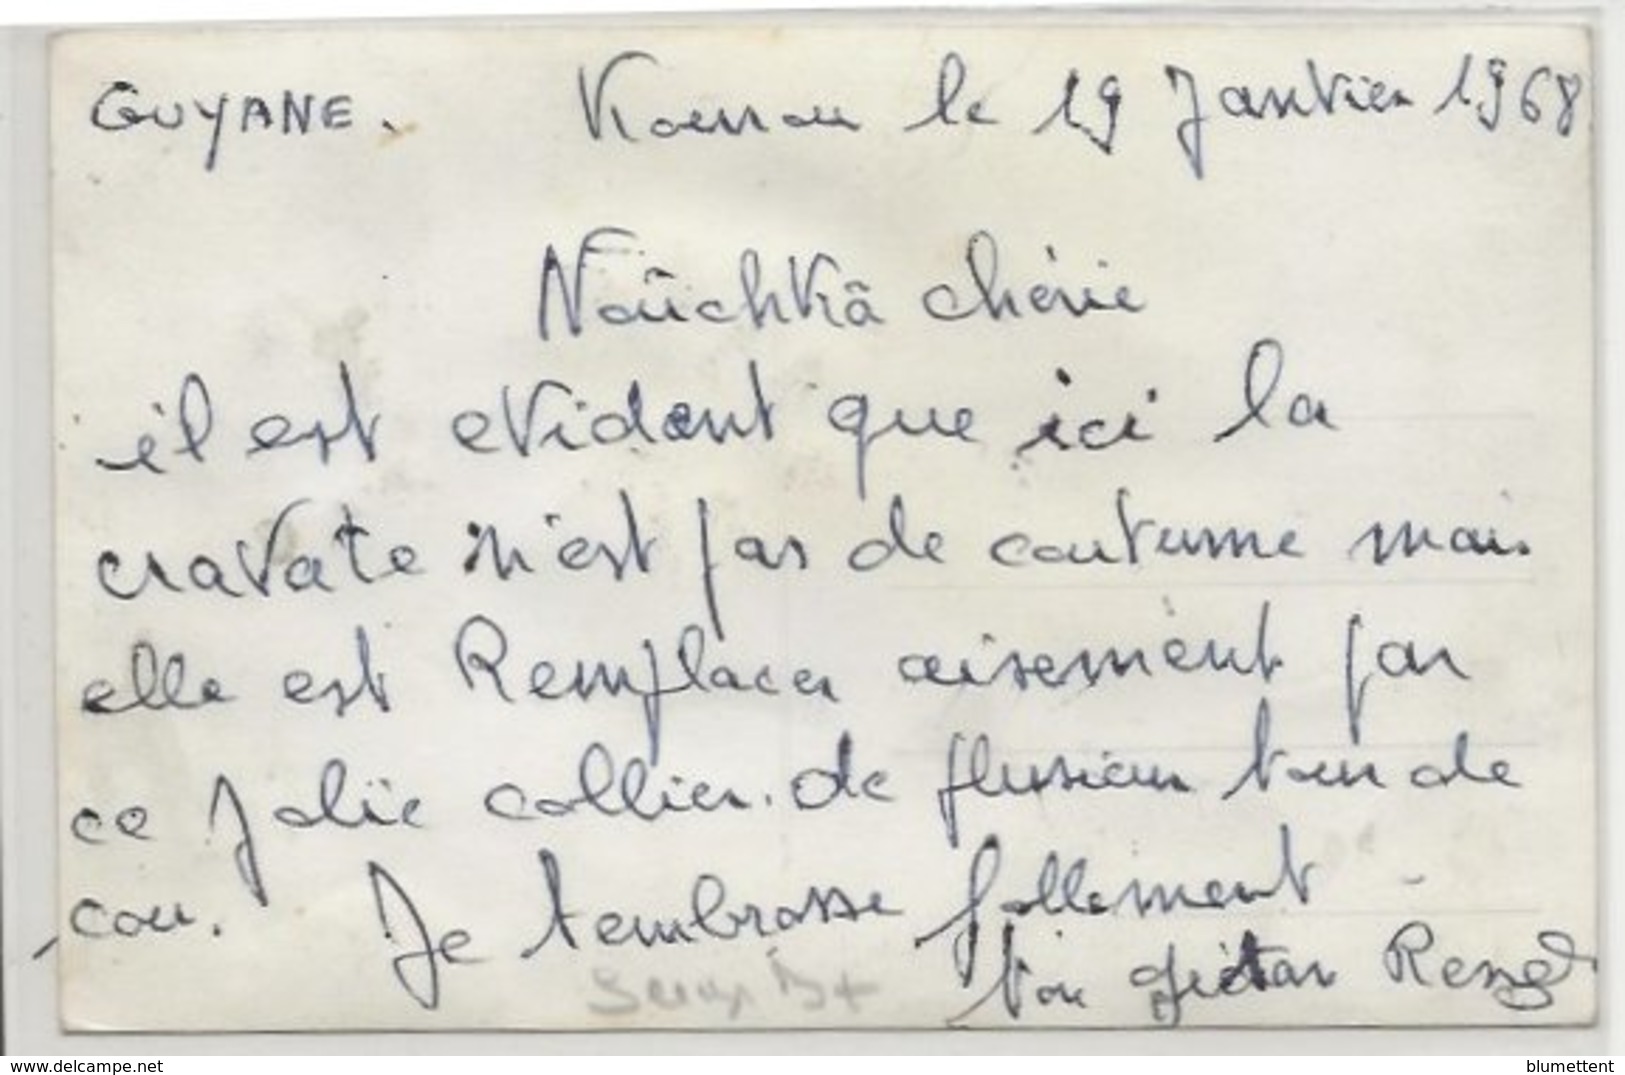 GUYANE. Kourou le 19 Janvier 1968
Noûchkâ chérie
il est evident que ici la
cravate n'est pas de coutume mais
elle est Remplacer aisement par
ce Jolïe collier de plusieur tour de
cou. Je t'embrasse follement
ton
www.delcampe.net
blumettent